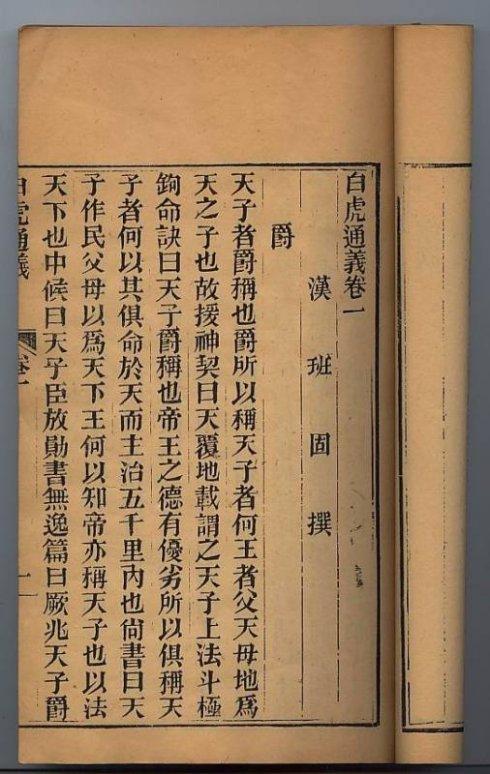 白虎通義卷一
漢班固撰
爵
天子者爵稱也爵所以稱天子者何王者父天母地爲
天之子也故援神契曰天覆地載謂之天子上法斗極
鉤命訣曰天子爵稱也帝王之德有優劣所以俱稱天
子者何以其俱命於天而主治五千里內也尙書曰天
子作民父母以爲天下王何以知帝亦稱天子也以法
天下也中候曰天子臣放勛書無逸篇曰厥兆天子爵
白虎通義 卷一 一